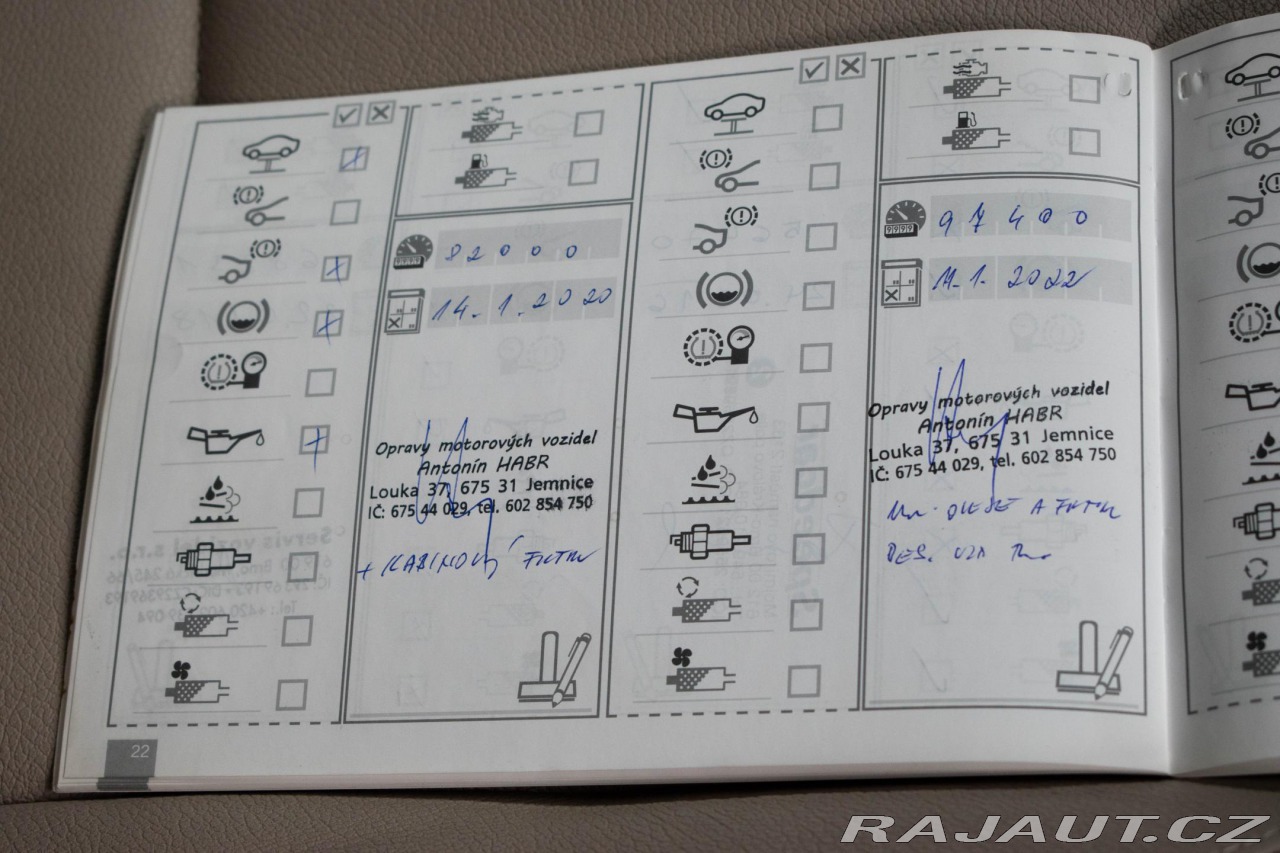 82000
14.1.2020
Opravy motorových vozidel
Antonín HABR
Louka 37, 675 31 Jemnice
IČ: 675 44 029, tel. 602 854 750
+ KABINOVÝ FILTR
97400
11.1.2022
Opravy motorových vozidel
Antonín HABR
Louka 37, 675 31 Jemnice
IČ: 675 44 029, tel. 602 854 750
A FILTRU
22
RAJAUT.CZ